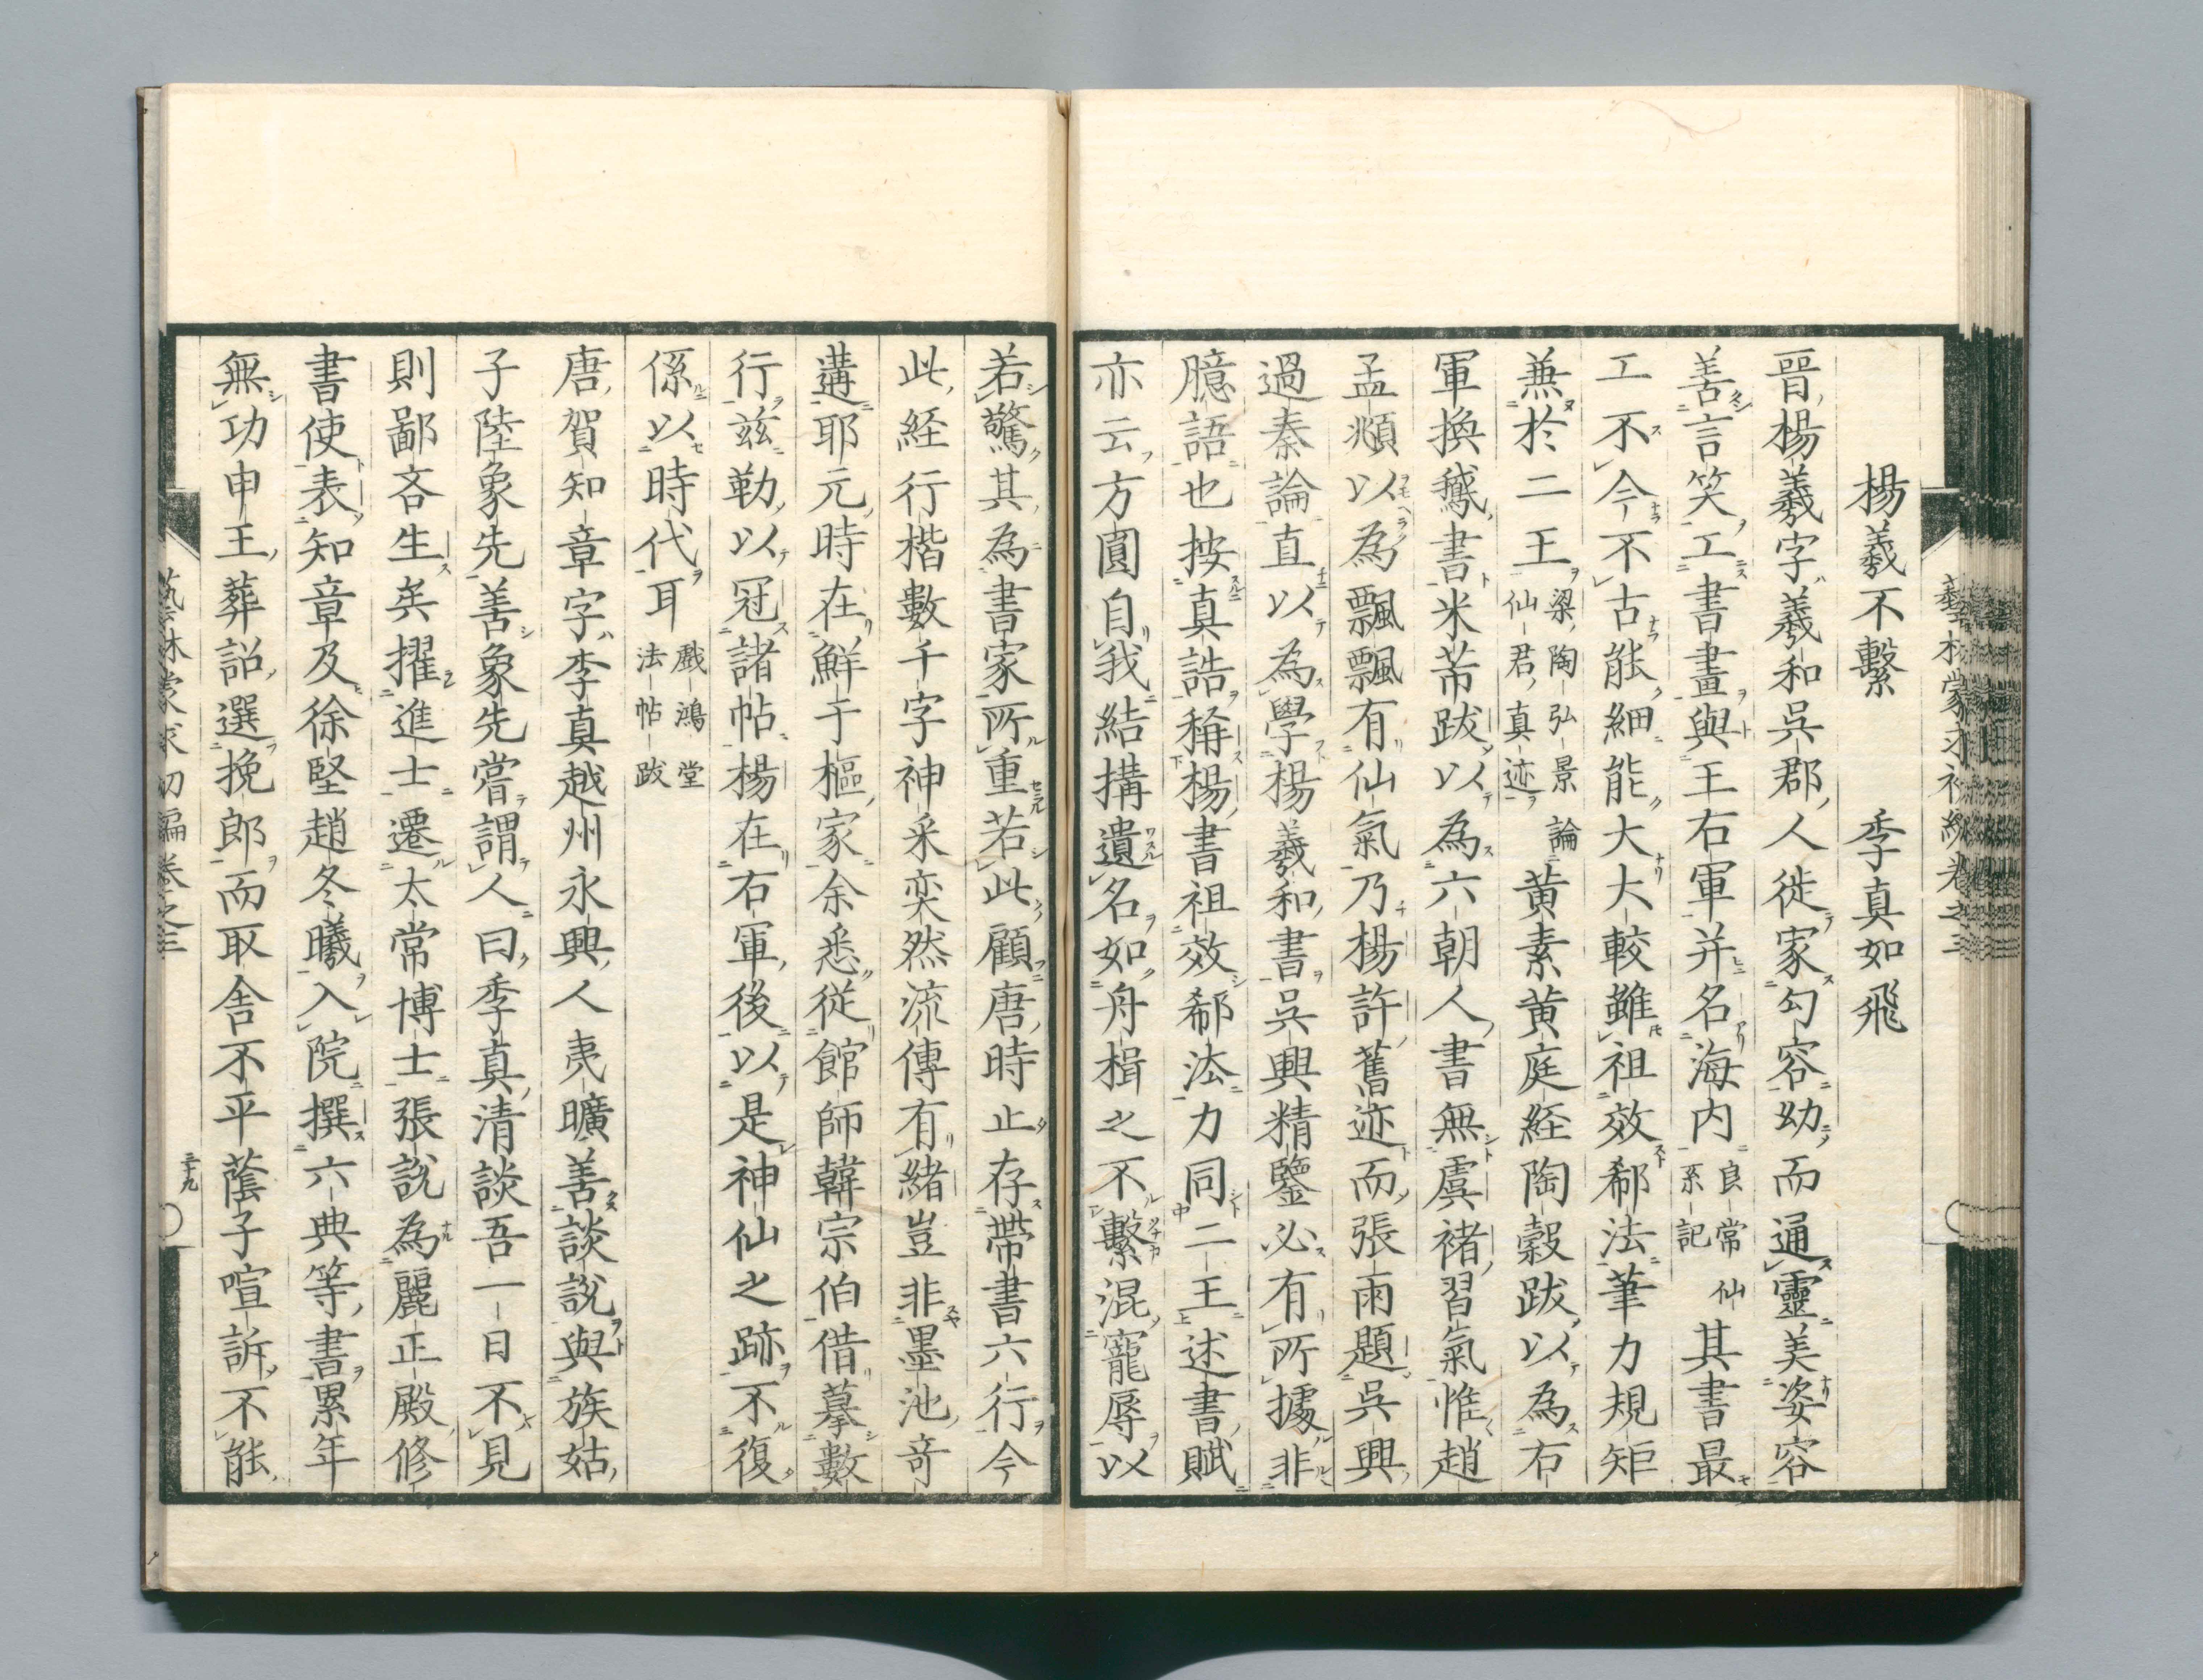 楊羲不繫　季真如飛
晉楊羲字羲和吳郡人徙家勾容幼而通靈美姿容
善言笑工書畫與王右軍并名海内良常仙系記其書最
工不今不古能細能大大較雖祖效郗法筆力規矩
兼於二王梁陶弘景論仙君真迹黄素黄庭経陶穀跋以為右
軍換鵝書米芾跋以為六朝人書無虞褚習氣惟趙
孟頫以為飄飄有仙氣乃楊許舊迹而張雨題吳興
過秦論直以為學楊羲和書吳興精鑒必有所據非
臆語也按真誥稱楊書祖效郗法力同二王述書賦
亦云方圓自我結搆遺名如舟楫之不繫混寵辱以
若驚其為書家所重若此顧唐時止存帶書六行今
此経行楷數千字神采奕然流傳有緒豈非墨池奇
遘耶元時在鮮于樞家余悉從館師韓宗伯借摹數
行兹勒以冠諸帖楊在右軍後以是神仙之跡不復
係以時代耳戲鴻堂法帖跋
唐賀知章字李真越州永興人夷曠善談說與族姑
子陸象先善象先嘗謂人曰季真清談吾一日不見
則鄙吝生矣擢進士遷太常博士張說為麗正殿修
書使表知章及徐堅趙冬曦入院撰六典等書累年
無功申王葬詔選挽郎而取舍不平蔭子喧訴不能
三十九